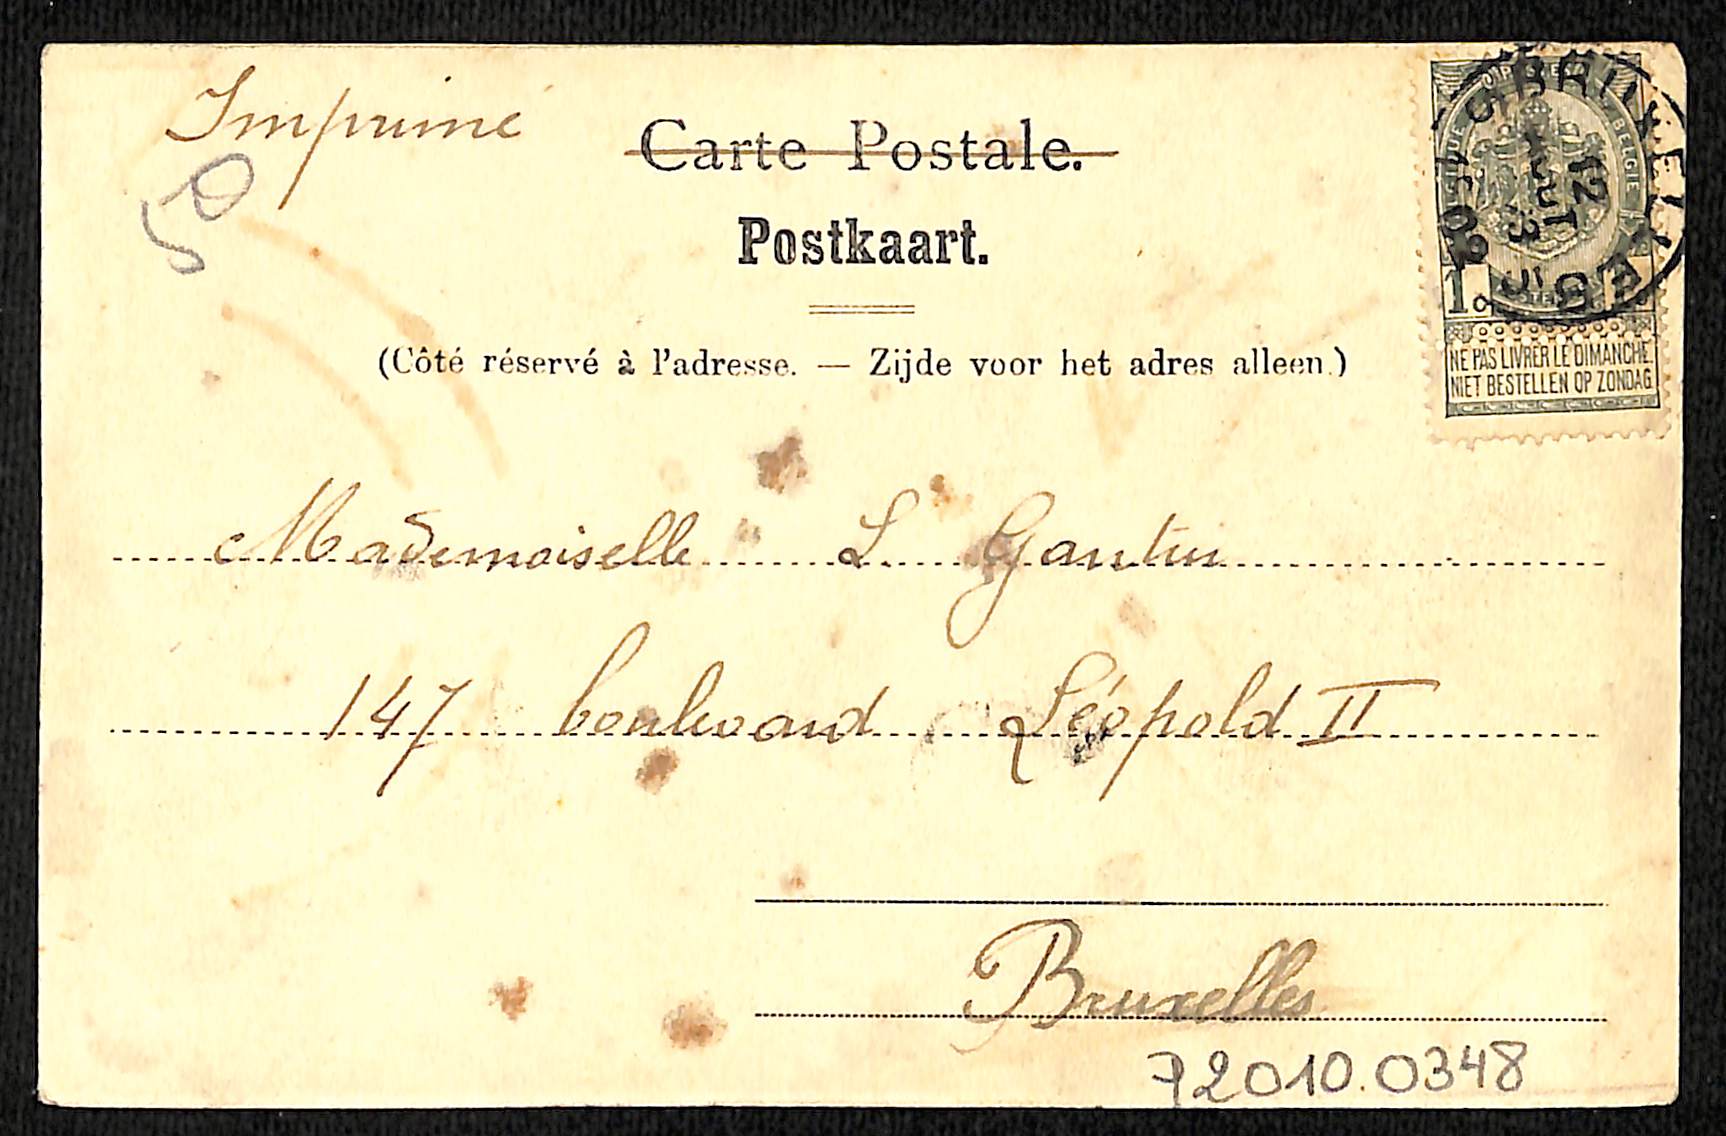 Imprimé
50
Carte Postale.
Postkaart.
(Côté réservé à l'adresse. — Zijde voor het adres alleen.)
BRUXELLES
12
AOUT
13
02
1c
NE PAS LIVRER LE DIMANCHE
NIET BESTELLEN OP ZONDAG
Mademoiselle L Gantin
147 boulevard Léopold II
Bruxelles
P2010.0348